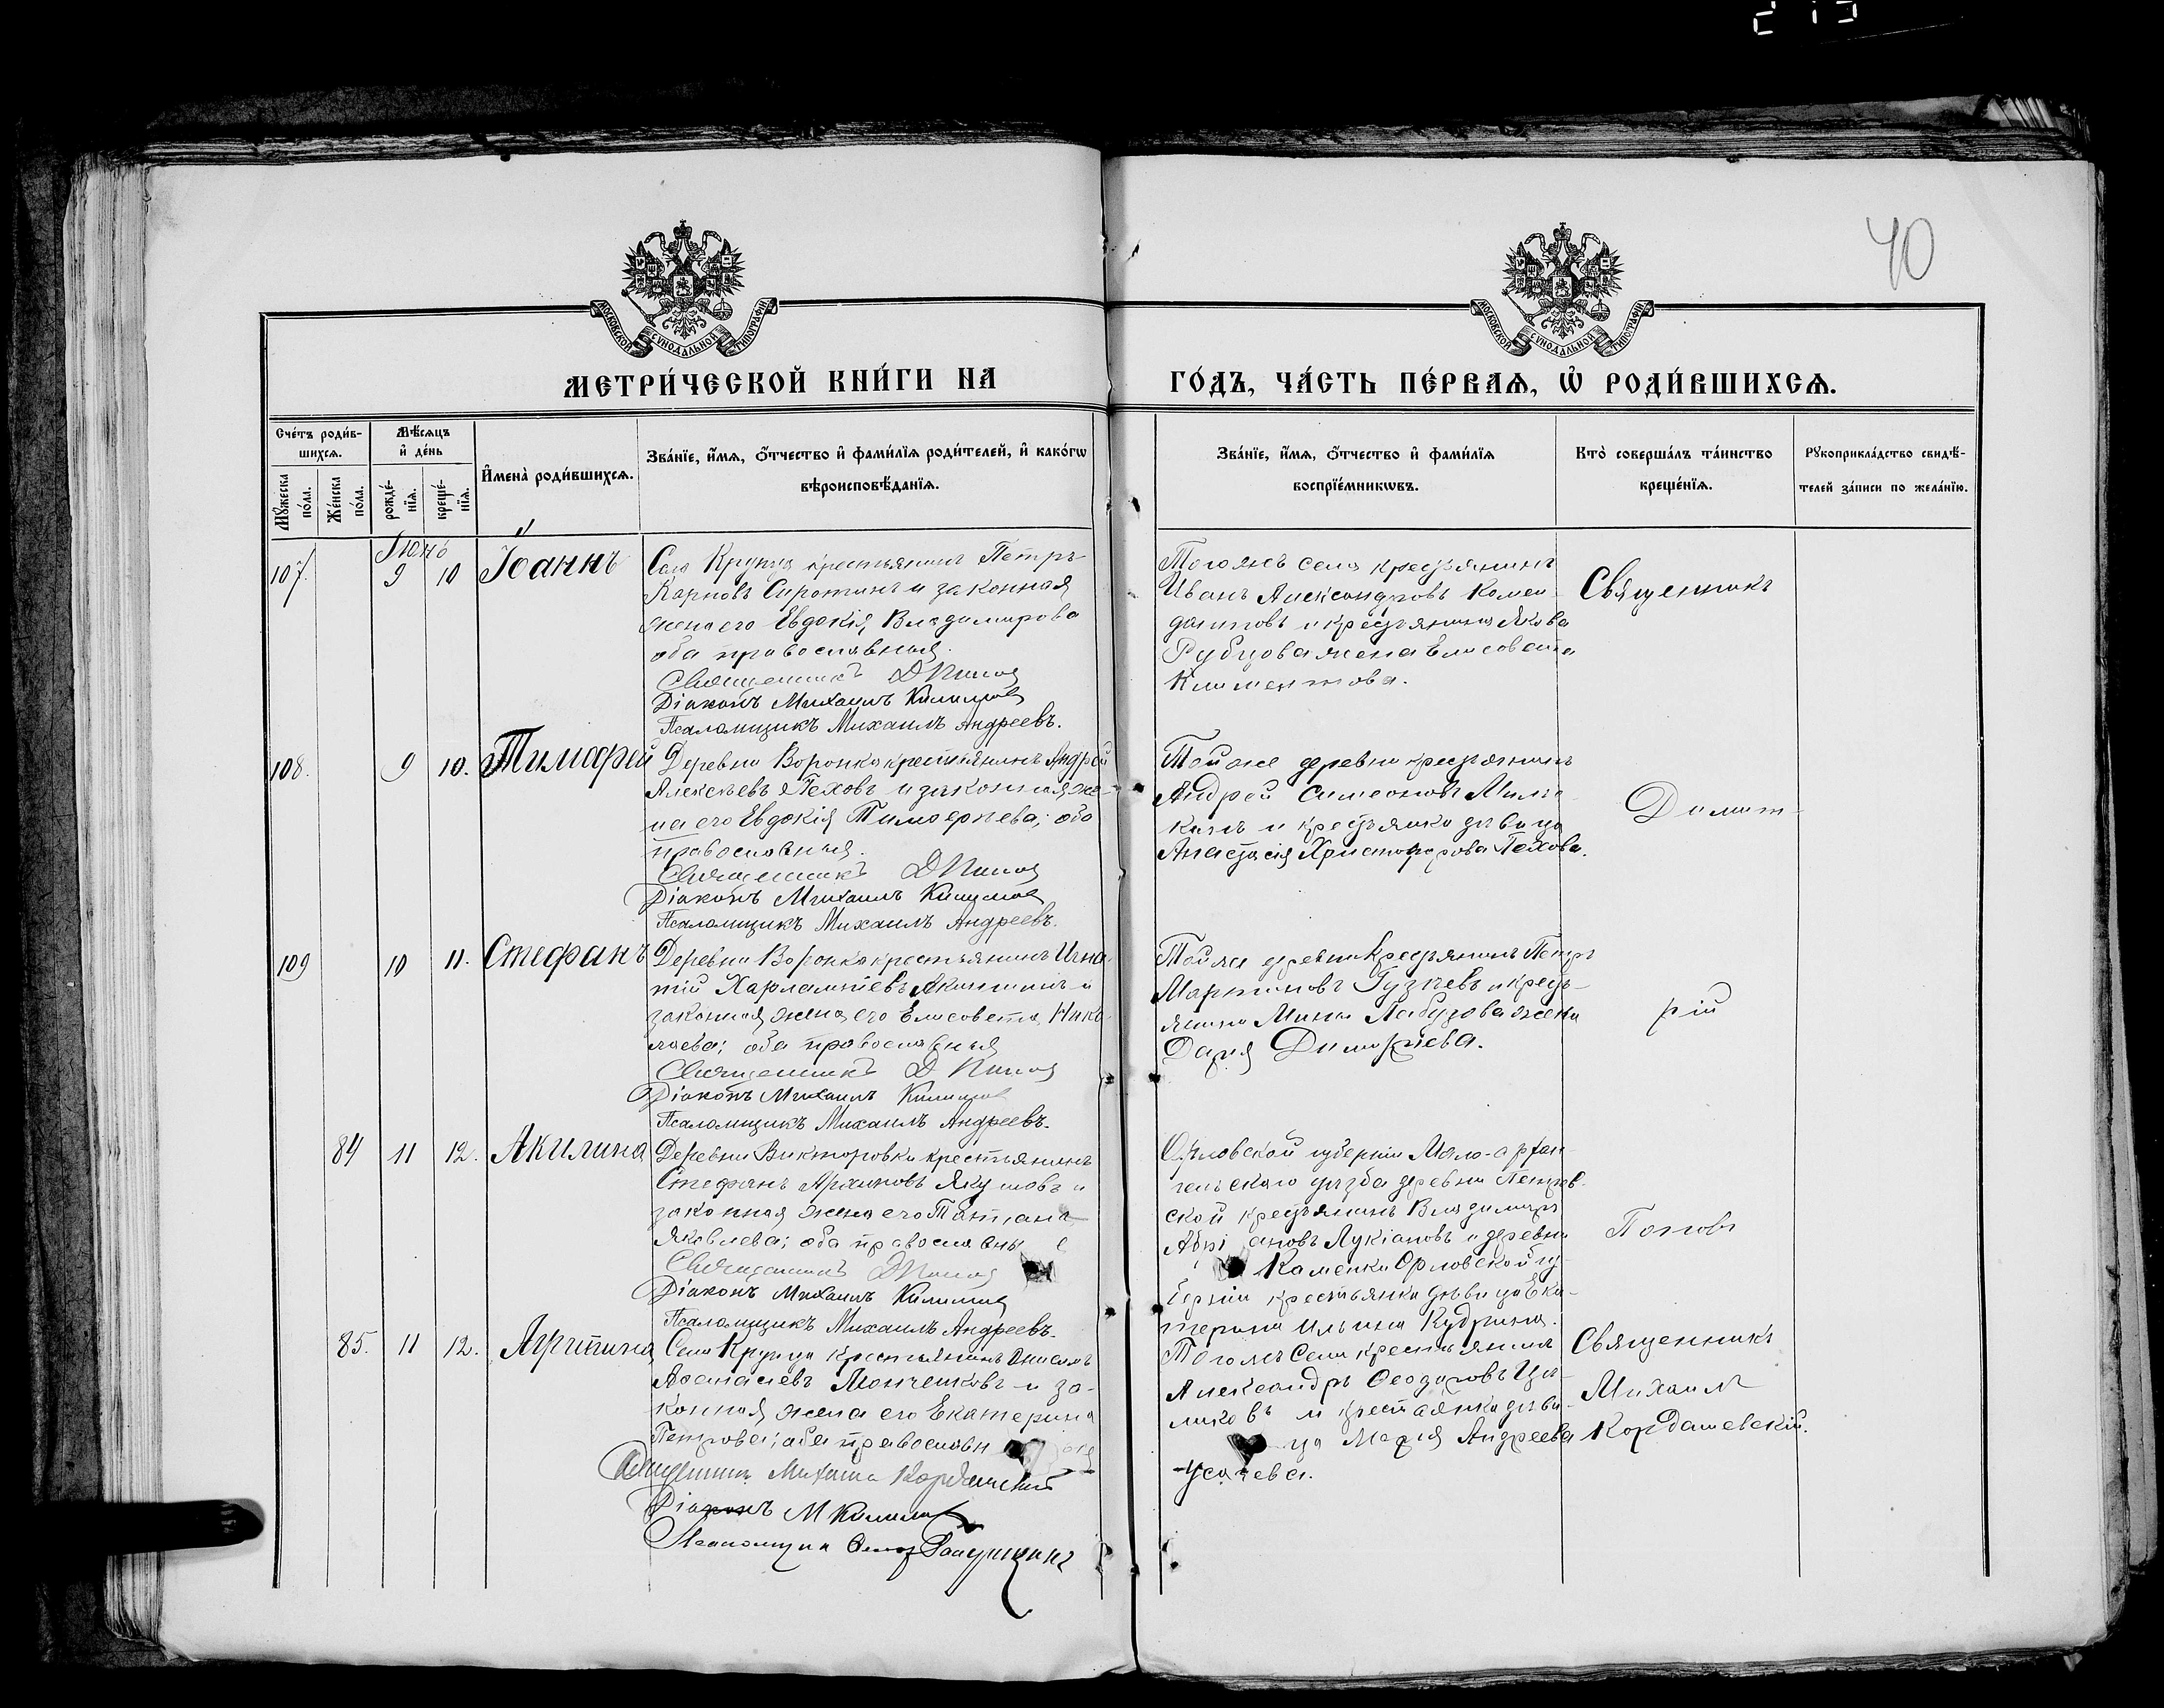 40
МОСКОВСКОЙ СУНОДАЛЬНОЙ ТИПОГРАФІИ
МОСКОВСКОЙ СУНОДАЛЬНОЙ ТИПОГРАФІИ
МЕТРИ́ЧЕСКОЙ КНИ́ГИ НА ГО́ДЪ, ЧА́СТЬ ПЕ́РВАѦ, Ѡ҆ РОДИ́ВШИХСѦ.
Сче́тъ роди́в-
шихсѧ.
Мꙋ́жеска по́ла.
Же́нска по́ла.
Мѣ́сѧцъ
и҆ де́нь
рожде́-
нїѧ.
креще́-
нїѧ.
И҆мена̀ роди́вшихсѧ.
Зва́нїе, и҆́мѧ, ѻ҆́тчество и҆ фами́лїѧ роди́телей, и҆ како́гѡ
вѣроисповѣ́данїѧ.
Зва́нїе, и҆́мѧ, ѻ҆́тчество и҆ фами́лїѧ
воспрїе́мникѡвъ.
Кто̀ соверша́лъ та́инство
креще́нїѧ.
Рꙋкоприкла́дство свидѣ́-
телей за́писи по жела́нїю.
Іюнь
107. 9 10 Іоаннъ
Села Крупца крестьянинъ Петръ
Карповъ Сиротинъ и законная
жена его Евдокія Владимирова
оба православныя.
Священникъ Д Попов
Діаконъ Михаилъ
Псаломщикъ Михаилъ Андреевъ.
Тогожъ села крестьянинъ
Иванъ Александровъ
и крестьянина Якова
Рубцова жена Елисовета
Климентова.
Священникъ
108. 9 10. Тимофей
Деревни Воронка крестьянинъ Андрей
Алексѣевъ Пеховъ и законная же-
на его Евдокія Тимоѳеева; оба
православныя.
Священникъ Д Попов
Діаконъ Михаилъ
Псаломщикъ Михаилъ Андреевъ.
Той же деревни крестьянинъ
Андрей Симеоновъ
и крестьянка дѣвица
Анастасія Христофорова Пехова.
Димит-
109 10 11. Стефанъ
Деревни Воронка крестьянинъ Игна-
тій Харлампіевъ Акиншинъ и
законная жена его Елисовета Нико-
лаева; оба православныя
Священникъ Д Попов
Діаконъ Михаилъ
Псаломщикъ Михаилъ Андреевъ.
Той же деревни крестьянинъ Петръ
Мартиновъ и крест-
янина Мины жена
Дарія Димитріева.
рій
84 11 12. Акилина
Деревни Викторовки крестьянинъ
Стефанъ Архиповъ Якушовъ и
законная жена его Татіана
Яковлева; оба православны е
Священникъ Д Попов
Діаконъ Михаилъ
Псаломщикъ Михаилъ Андреевъ.
Орловской губерніи Мало-архан-
гельскаго уѣзда деревни Петров-
ской крестьянинъ Владимиръ
ановъ Лукіановъ и деревни
Каменки Орловской гу-
берніи крестьянка дѣвица Ека-
терина Ильина Кудрина.
Поповъ
85. 11 12. Агрипина
Села Крупца крестьянинъ Онисимъ
Аѳанасіевъ и за-
конная жена его Екатерина
Петрова; оба православн
Священникъ Михаилъ Кордашевскій
Діаконъ М
Псаломщикъ
Тогожъ Села крестьянинъ
Александръ Ѳеодоровъ
и крестьянка дѣви-
ца Марія Андреева
Усачева.
Священникъ
Михаилъ
Кордашевскій.